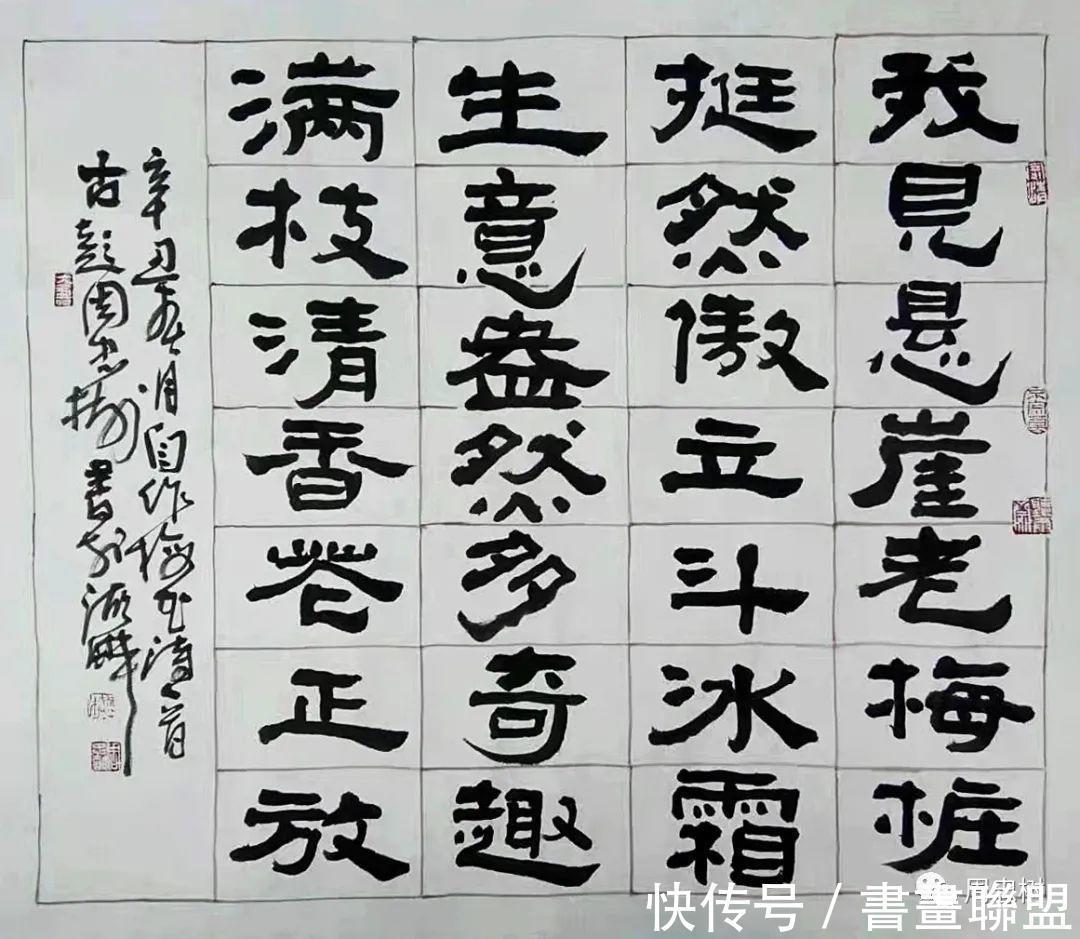 我見悬崖老梅桩
挺然傲立斗冰霜
生意盎然多奇趣
满枝清香花正放
辛丑年 月自作梅花诗一首
古彭周忠树書于 畔
周忠树
快传号 / 書畫聯盟